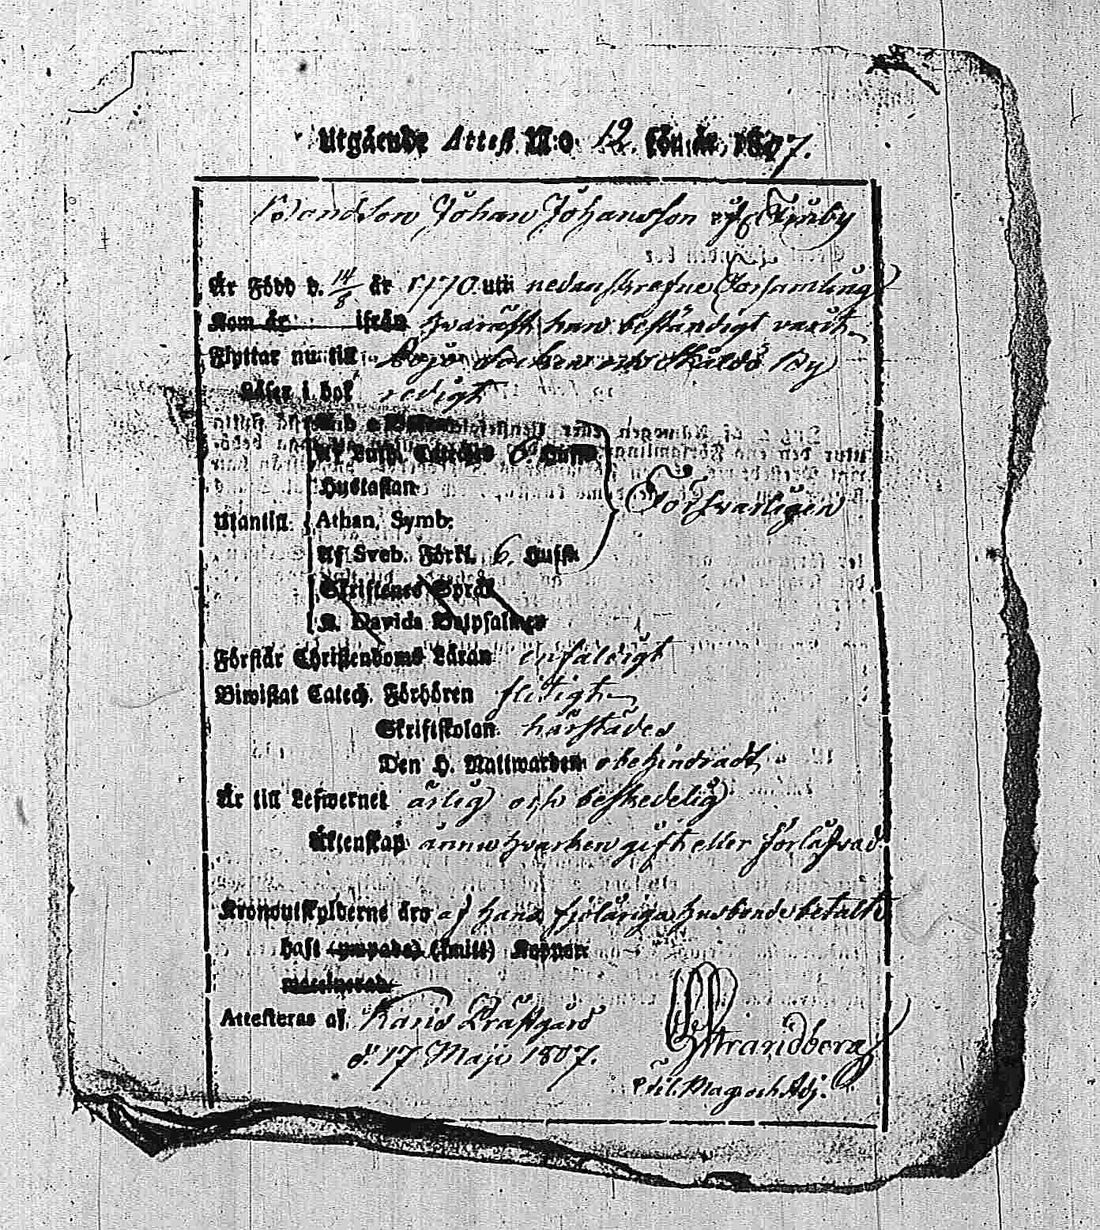 Utgående Attest N:o 12. för år 1807.
Bondson Johan Johansson uf Finby
Är Född d. 14/8 år 1770 uti nedanskrefne Församling
Kom år ifrån hvaräst han beständigt varit
Flyttar nu till Bojo Socken och Skälds By
Läser i bok redigt
Af Luth. Cateches 6 Hufst.
Hustaflan
Utantill Athan. Symb. Försvarligen
Af Sveb. Förkl. 6. Hufst.
Skriftenes Språk
K. Davids Botpsalmer
Förstår Christendoms Läran enfäldigt
Biwistat Catech. Förhören flitigt
Skriftskolan härstädes
Den H. Nattwarden obehindradt
Är till Lefwernet ärlig och beskedelig
Äktenskap ännu hvarken gift eller förlåfvad
Kronoutskylderne äro af hans fjolåriga husbonde betalte
haft (ympade) (smitt) Koppor
vaccinerad
Attesteras af Karis Prästgård
d. 17 Maji 1807.
Strandberg
Phil. Mag. och Adj.